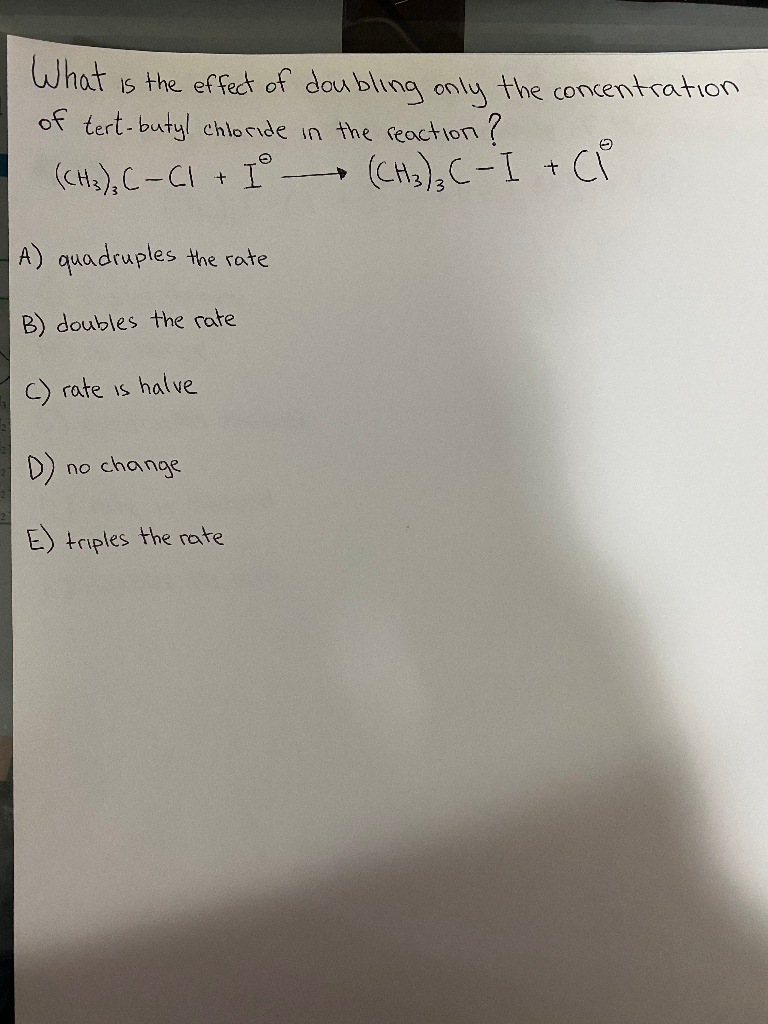 What is the effect of doubling only the concentration
of tert-butyl chloride in the reaction?
(CH₃)₃C-Cl + I⊖ → (CH₃)₃C-I + Cl⊖
A) quadruples the rate
B) doubles the rate
C) rate is halve
D) no change
E) triples the rate